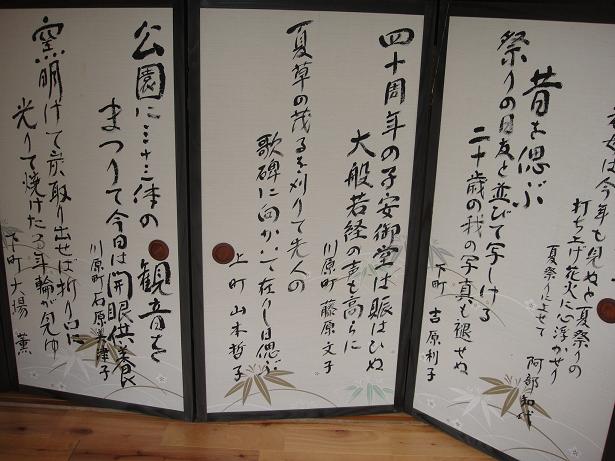 は今年も見ぬと夏祭りの
打ち上げ花火に心浮かせり
夏祭りによせて 阿部
昔を偲ぶ
祭りの日友と並びて写しける
二十歳の我の写真も褪せぬ
下町 吉原利子
四十周年の子安御堂は賑はひぬ
大般若経の声も高らに
川原町 藤原文子
夏草の茂るを刈りて先人の
歌碑に向かいて在りし日偲ぶ
上町 山本哲子
公園に三十三体の観音を
まつりて今日は開眼供養
川原町 石原美津子
窯明けて炭取り出せば折り口に
光りて焼けたる年輪が見ゆ
下町 大場 薫